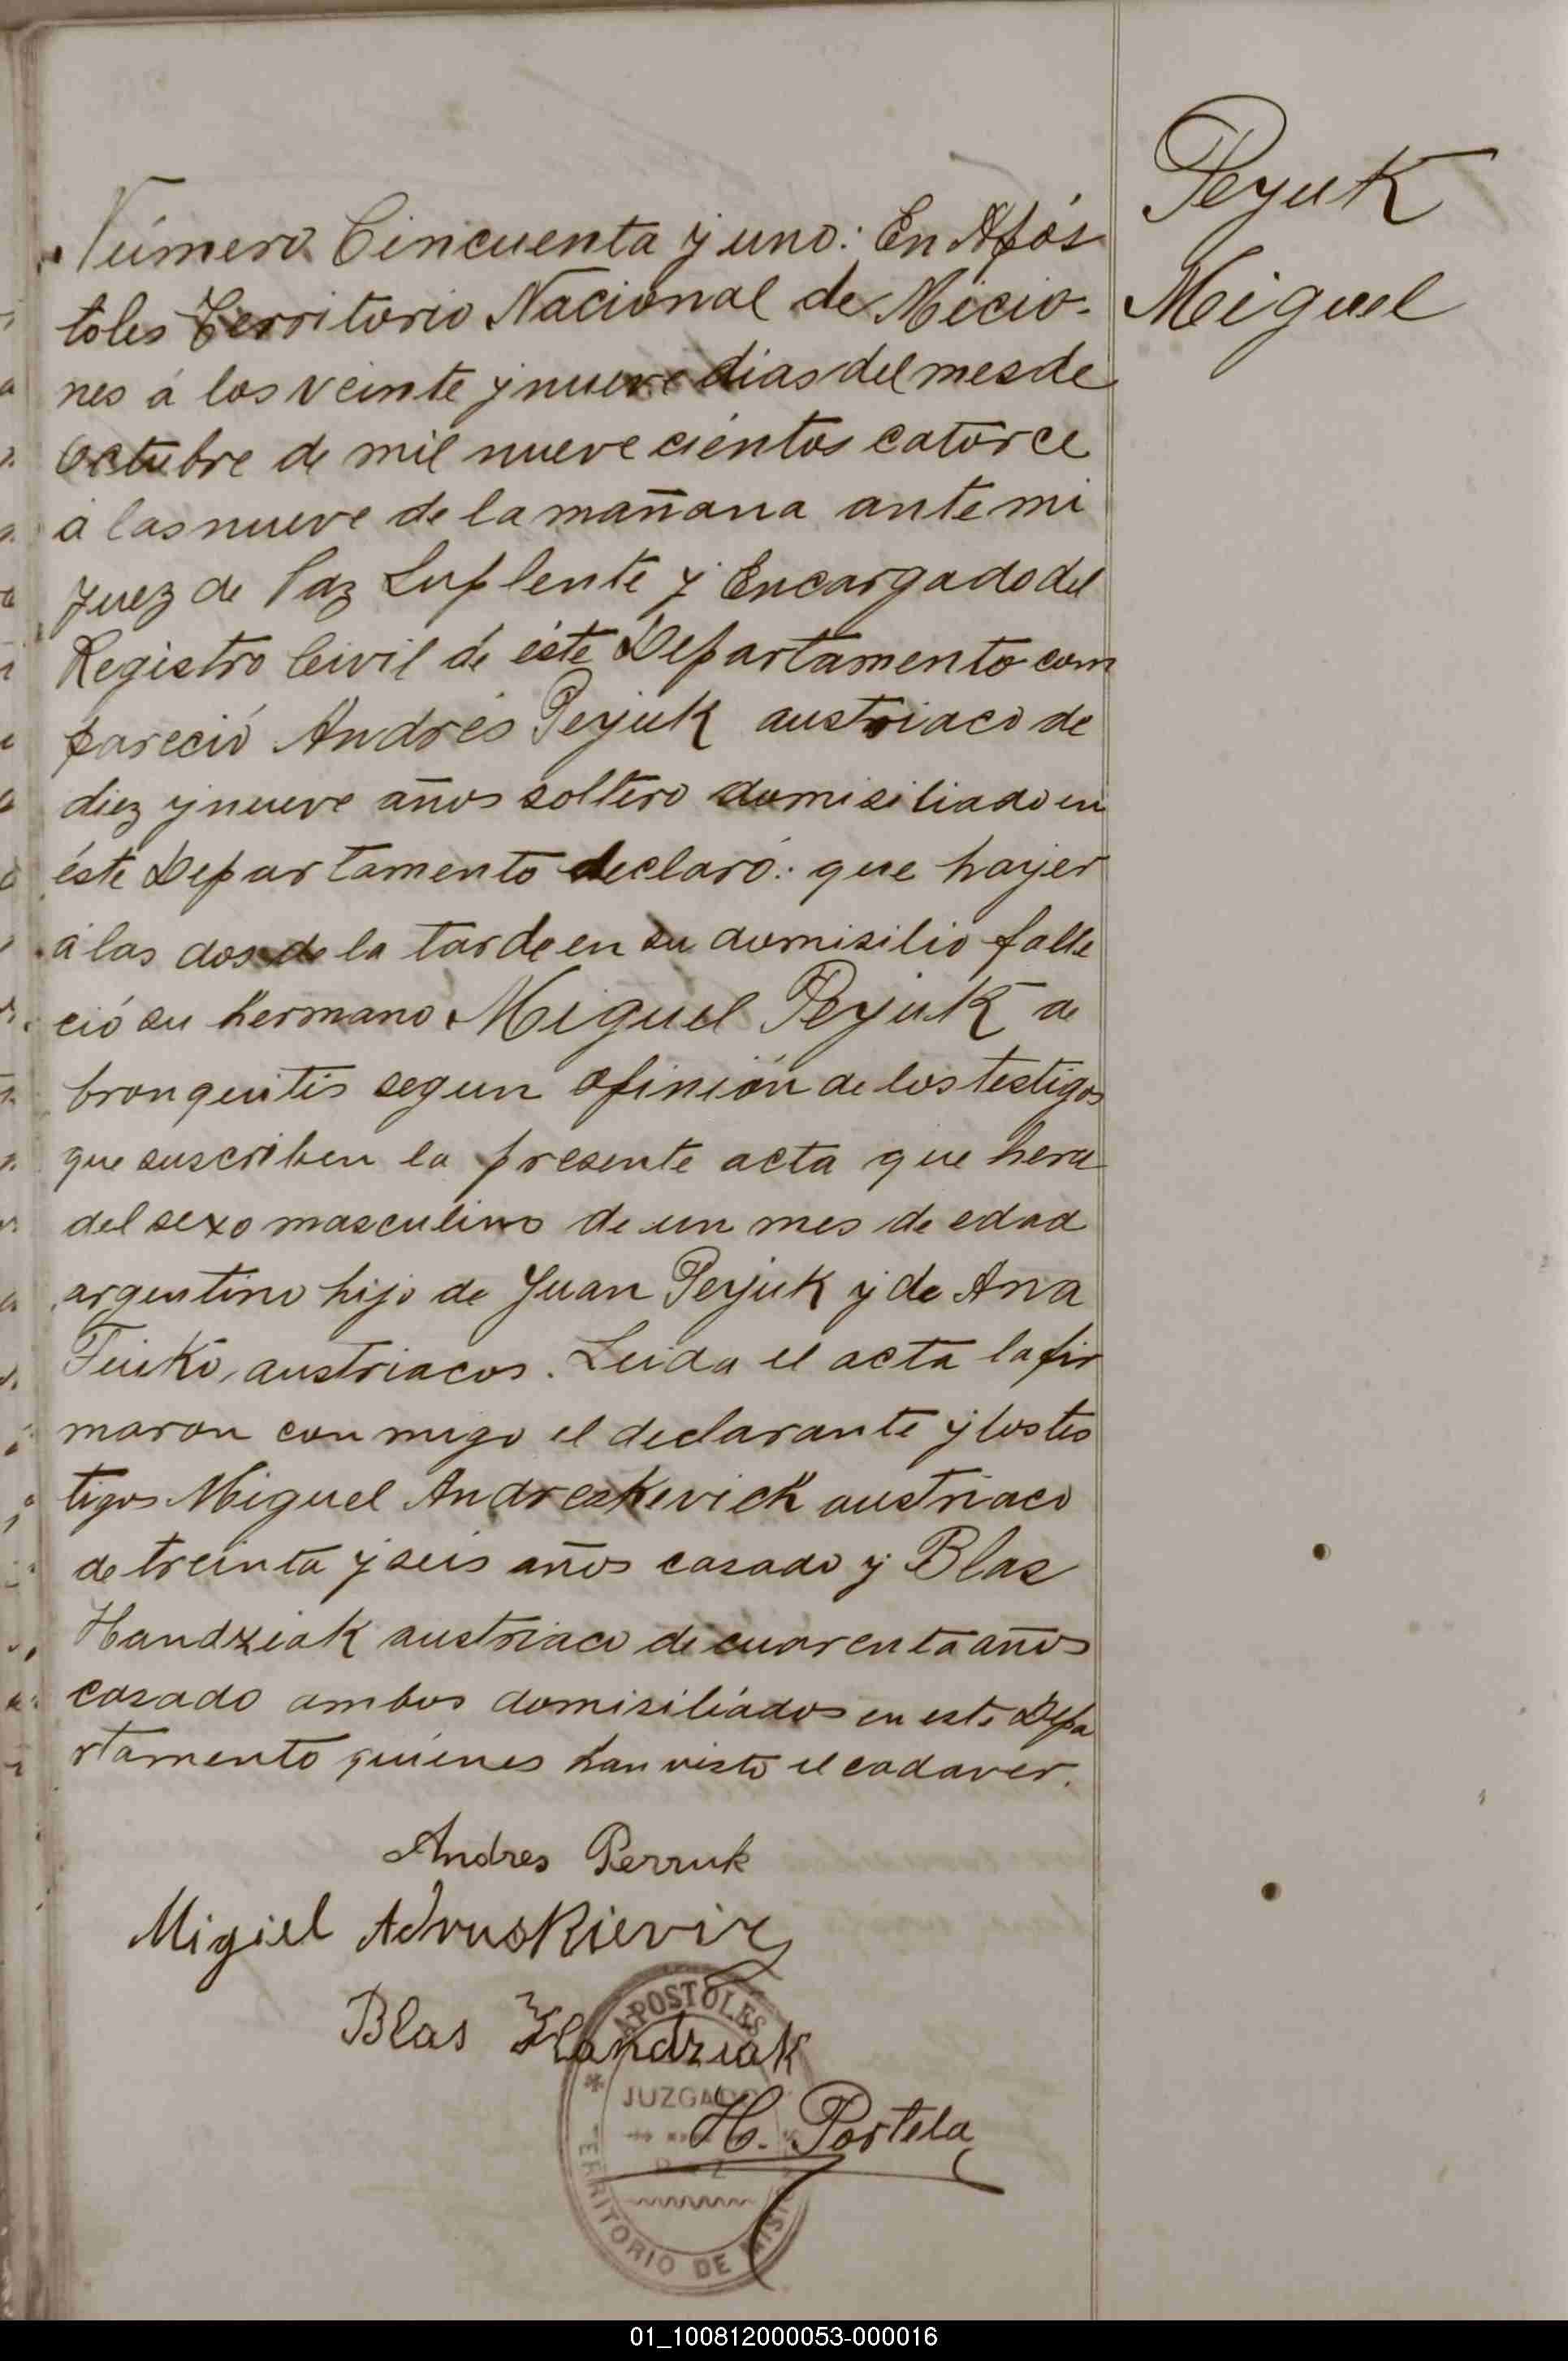 Peyuk
Miguel
Número Cincuenta y uno: En Após
toles Territorio Nacional de Micio-
nes á los veinte y nueve dias del mes de
Octubre de mil nueve cientos catorce
á las nueve de la mañana ante mi
Juez de Paz Suplente y Encargado del
Registro Civil de éste Departamento com
pareció Andrés Peyuk austriaco de
diez y nueve años soltero domisiliado en
éste Departamento declaró: que hayer
á las dos de la tarde en su domisilio falle
ció su hermano Miguel Peyuk de
bronquitis segun opinión de los testigos
que suscriben la presente acta que hera
del sexo masculino de un mes de edad
argentino hijo de Juan Peyuk y de Ana
austriacos. Leida el acta la fir
maron con migo el declarante y los tes
tigos Miguel Andreskevich austriaco
de treinta y seis años casado y Blas
Handziak austriaco de cuarenta años
casado ambos domisiliados en este Depa
rtamento quienes han visto el cadaver.
Andres Perruk
Migiel Adruskievir
Blas Handziak
H. Portela
APOSTOLES
JUZGADO
TERRITORIO DE MISIO
01_100812000053-000016